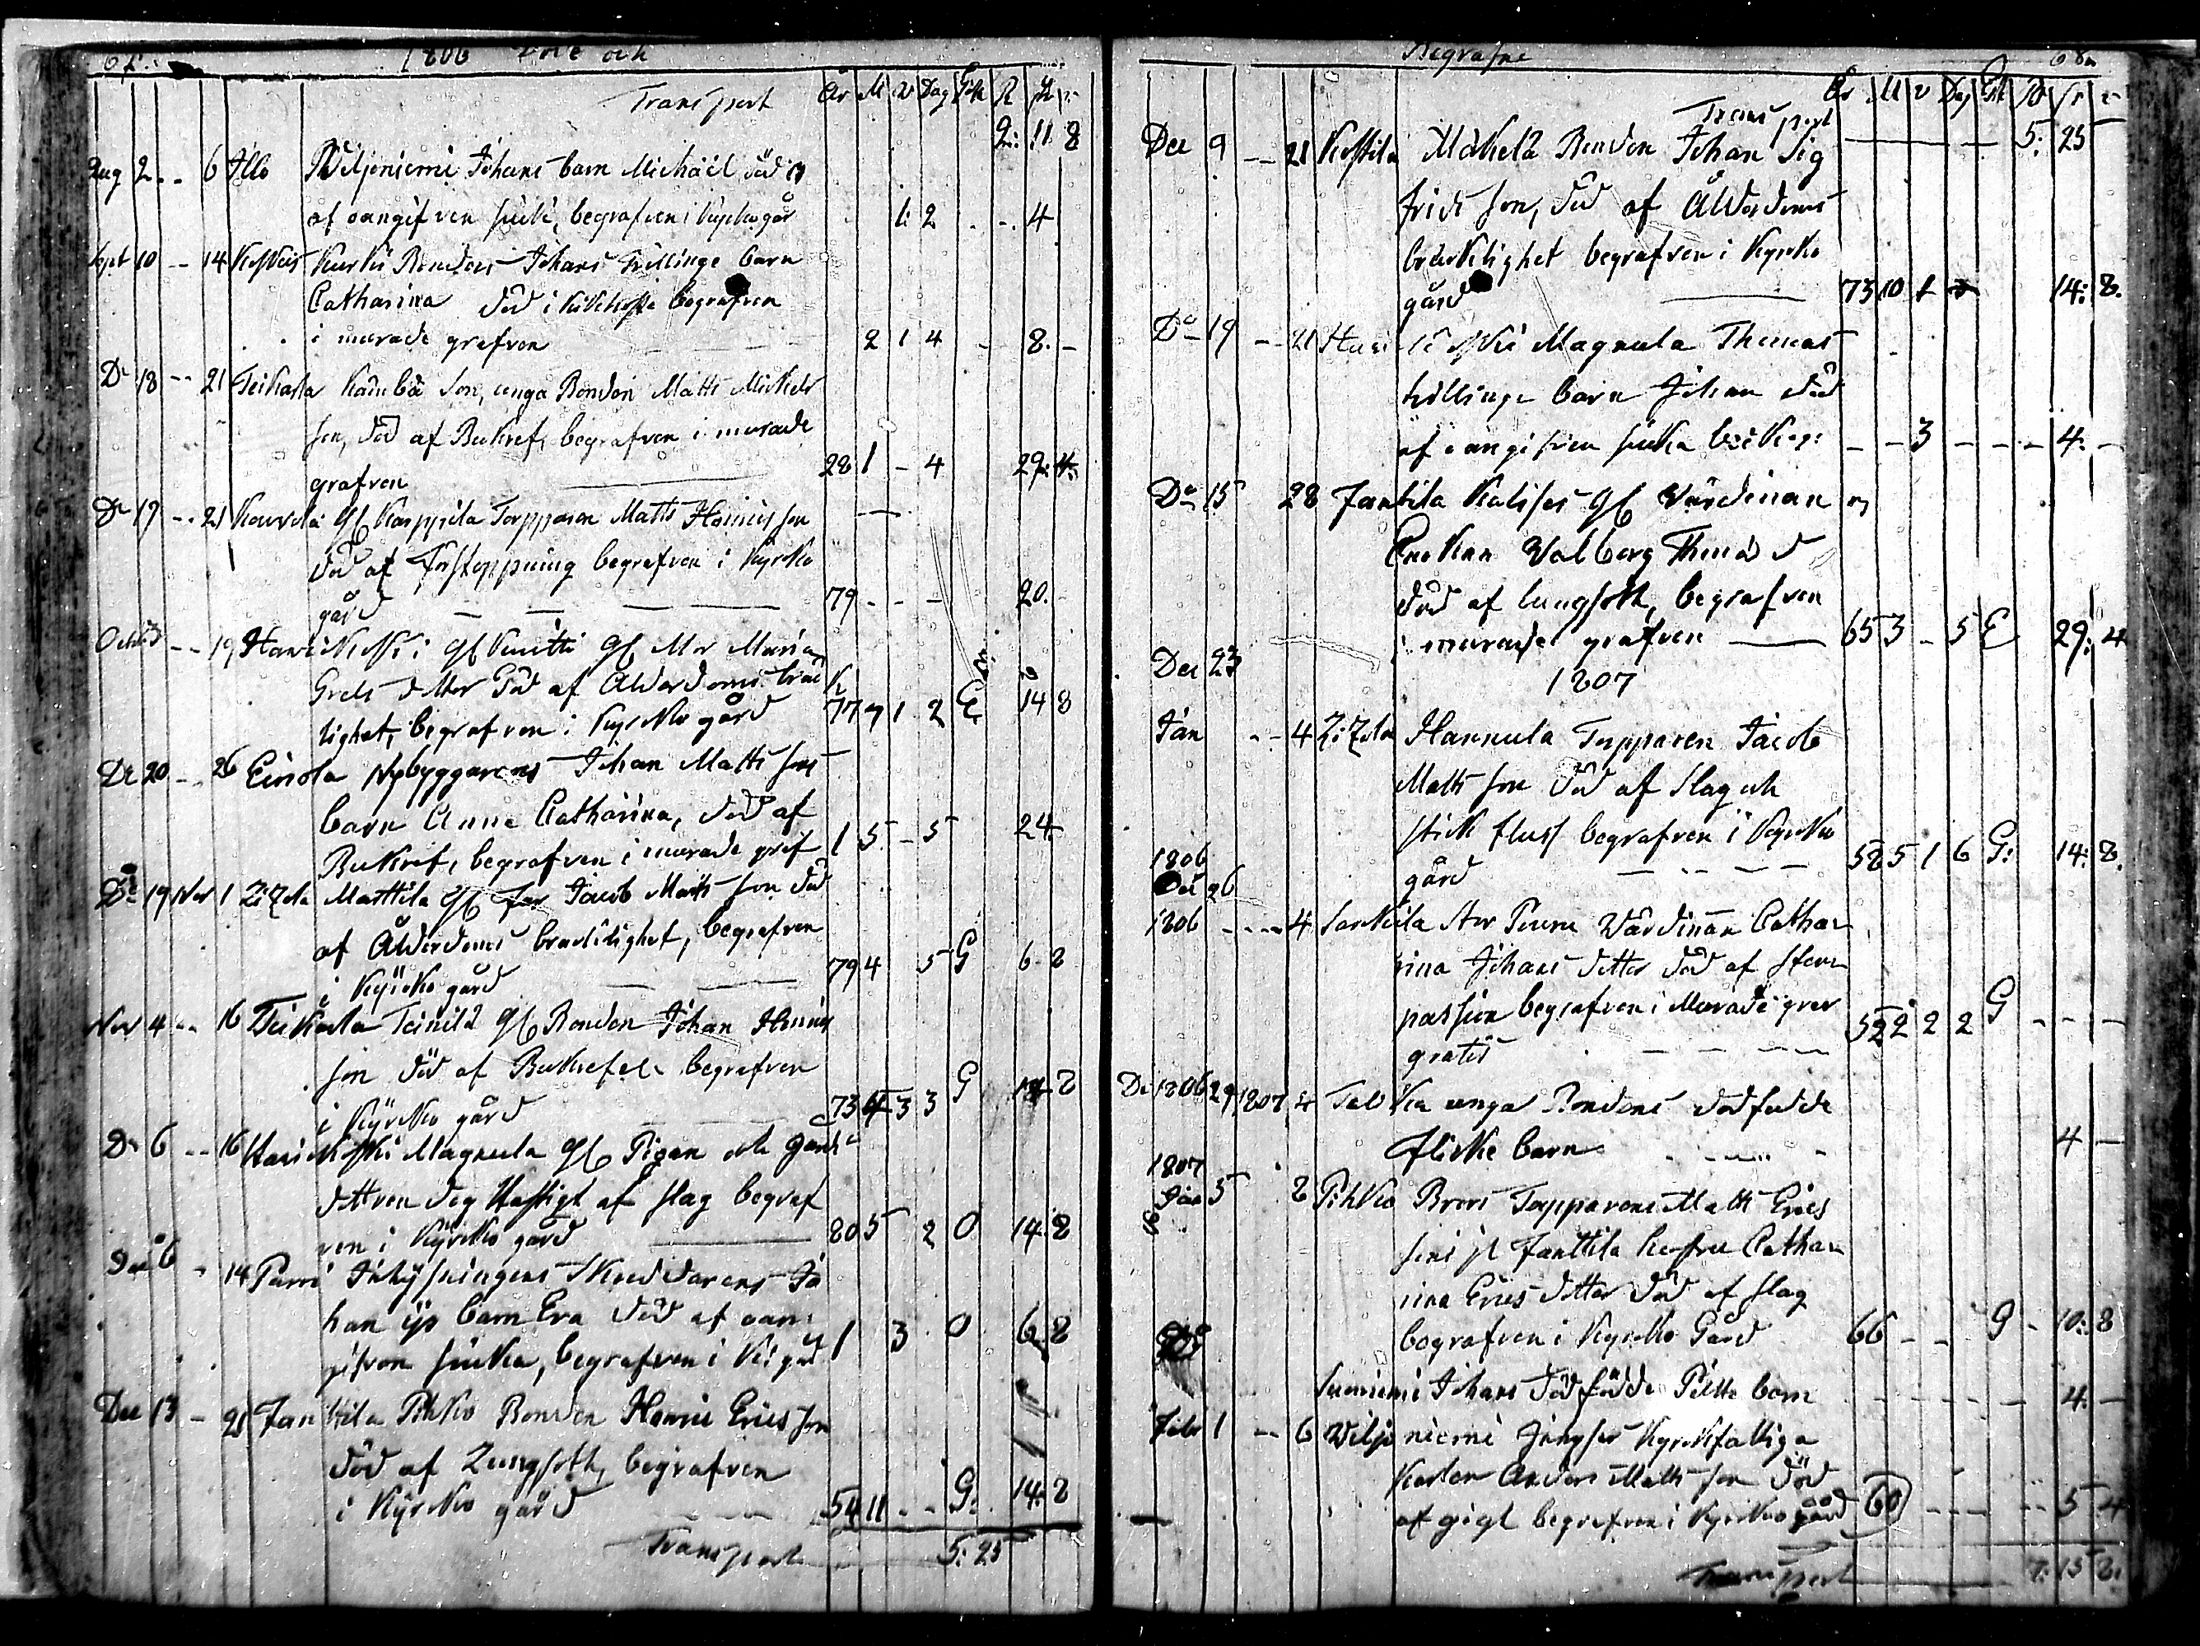 67. 1806 Döde och
Transport År M V Dag Gift R sk r
2: 11 8
Aug 2 - - 6 Illo Wiljoniemi Johans barn Michäel död
af oangifven siuk, begrafven i kyrkogår 1: 2 - - 4
Sept 10 - - 14 Kurki Bondens Johans Tvillinge barn
Catharina död i kikhosta begrafven
i murade grafven 2 1 4 - 8. -
Do 18 - - 21 Teikarla son, unga Bonden Matts Mickels
son, död af Bukref, begrafven i murade
grafven 28 1 - 4 29: 4
Do 17 - - 21 Kouvola Gl Karppila Torpparen Matts Henrics son
död af förstoppning begrafven i kyrko
gård 79 - - - 20. -
Octob 13 - - 19 Gl Gl Mor Maria
Grels dotter död af Ålderdoms bräck
lighet, begrafven i kyrko gård 77 7 1 2 E 14 8
Do 20 - - 26 Einola Nybyggarens Johan Matts sons
barn Anna Catharina, död af
Bukref, begrafven i murade graf 1 5 - 5 24
Do 19 Nov 1 Mattila Gl far Jacob Matts son död
af Ålderdoms bräcklighet, begrafven
i kyrko gård 79 4 5 G 6 8
Nov 4 - - 16 Teikarla Teinilä Gl Bonden Johan Henrics
son död af Bukref begrafven
i kyrko gård 73 4 3 3 G 14 8
Do 6 - - 16 Magnula Gl Pigan och
död hastigt af slag begraf
ven i kyrko gård 80 5 2 O 14: 8
Do 6 - 14 Parri Inhysningens Skreddarens Jo
han barn Eva död af oan
gifven siuka, begrafven i K: gård 1 3 O 6 8
Dec 13 - 21 Fanttila Pihko Bonden Henric Erics son
död af Lungsoth, begrafven
i kyrko gård 54 11 - - G: 14: 8
Transport 5: 25
Begrafne 68
År M v Dag Gift R sk r
Transport 5: 25
Dec 9 - - 21 Mäkelä Bonden Johan Sig
frids son, död af Ålderdoms
bräcklighet begrafven i kyrko
gård 73 10 1 14: 8.
Do 19 - - 21 Magnula Thomas
tvillinge barn Johan död
af oangifven siuka - - 3 - - - 4: -
Do 15 28 Fantila Gl Värdinnan
Enckan Valborg Thomæ d
död af lungsoth, begrafven
i murade grafven 65 3 - 5 E 29: 4
Dec 23
1807
Jan - - 4 Hannula Torpparen Jacob
Matts son död af slag och
stick fluss begrafven i kyrko
gård 58 5 1 6 G: 14: 8.
1806
Dec 26
1806 - - - 4 Värdinnan Catha
rina Johans dotter död af sten
passion begrafven i Murade grav
gratis 52 2 2 2 G - - -
De 1806 29 1807 4 unga Bondens dödfödde
flicke barn 4 -
1807
Jan 5 8 Pihko Brors Torpparens Matts Erics
sons Fanttila hustru Catha
rina Erics dotter död af slag
begrafven i kyrko Gård 66 - - G - 10: 8
Suoniemi Johans dödfödde Pilte barn - - - - - 4: -
Febr 1 - - 6 Wiljoniemi Kyrckfattiga
Karlen Anders Matts son död
af gigt begrafven i kyrko gård 60 - - - - 5 4
Transport 7: 15 8.